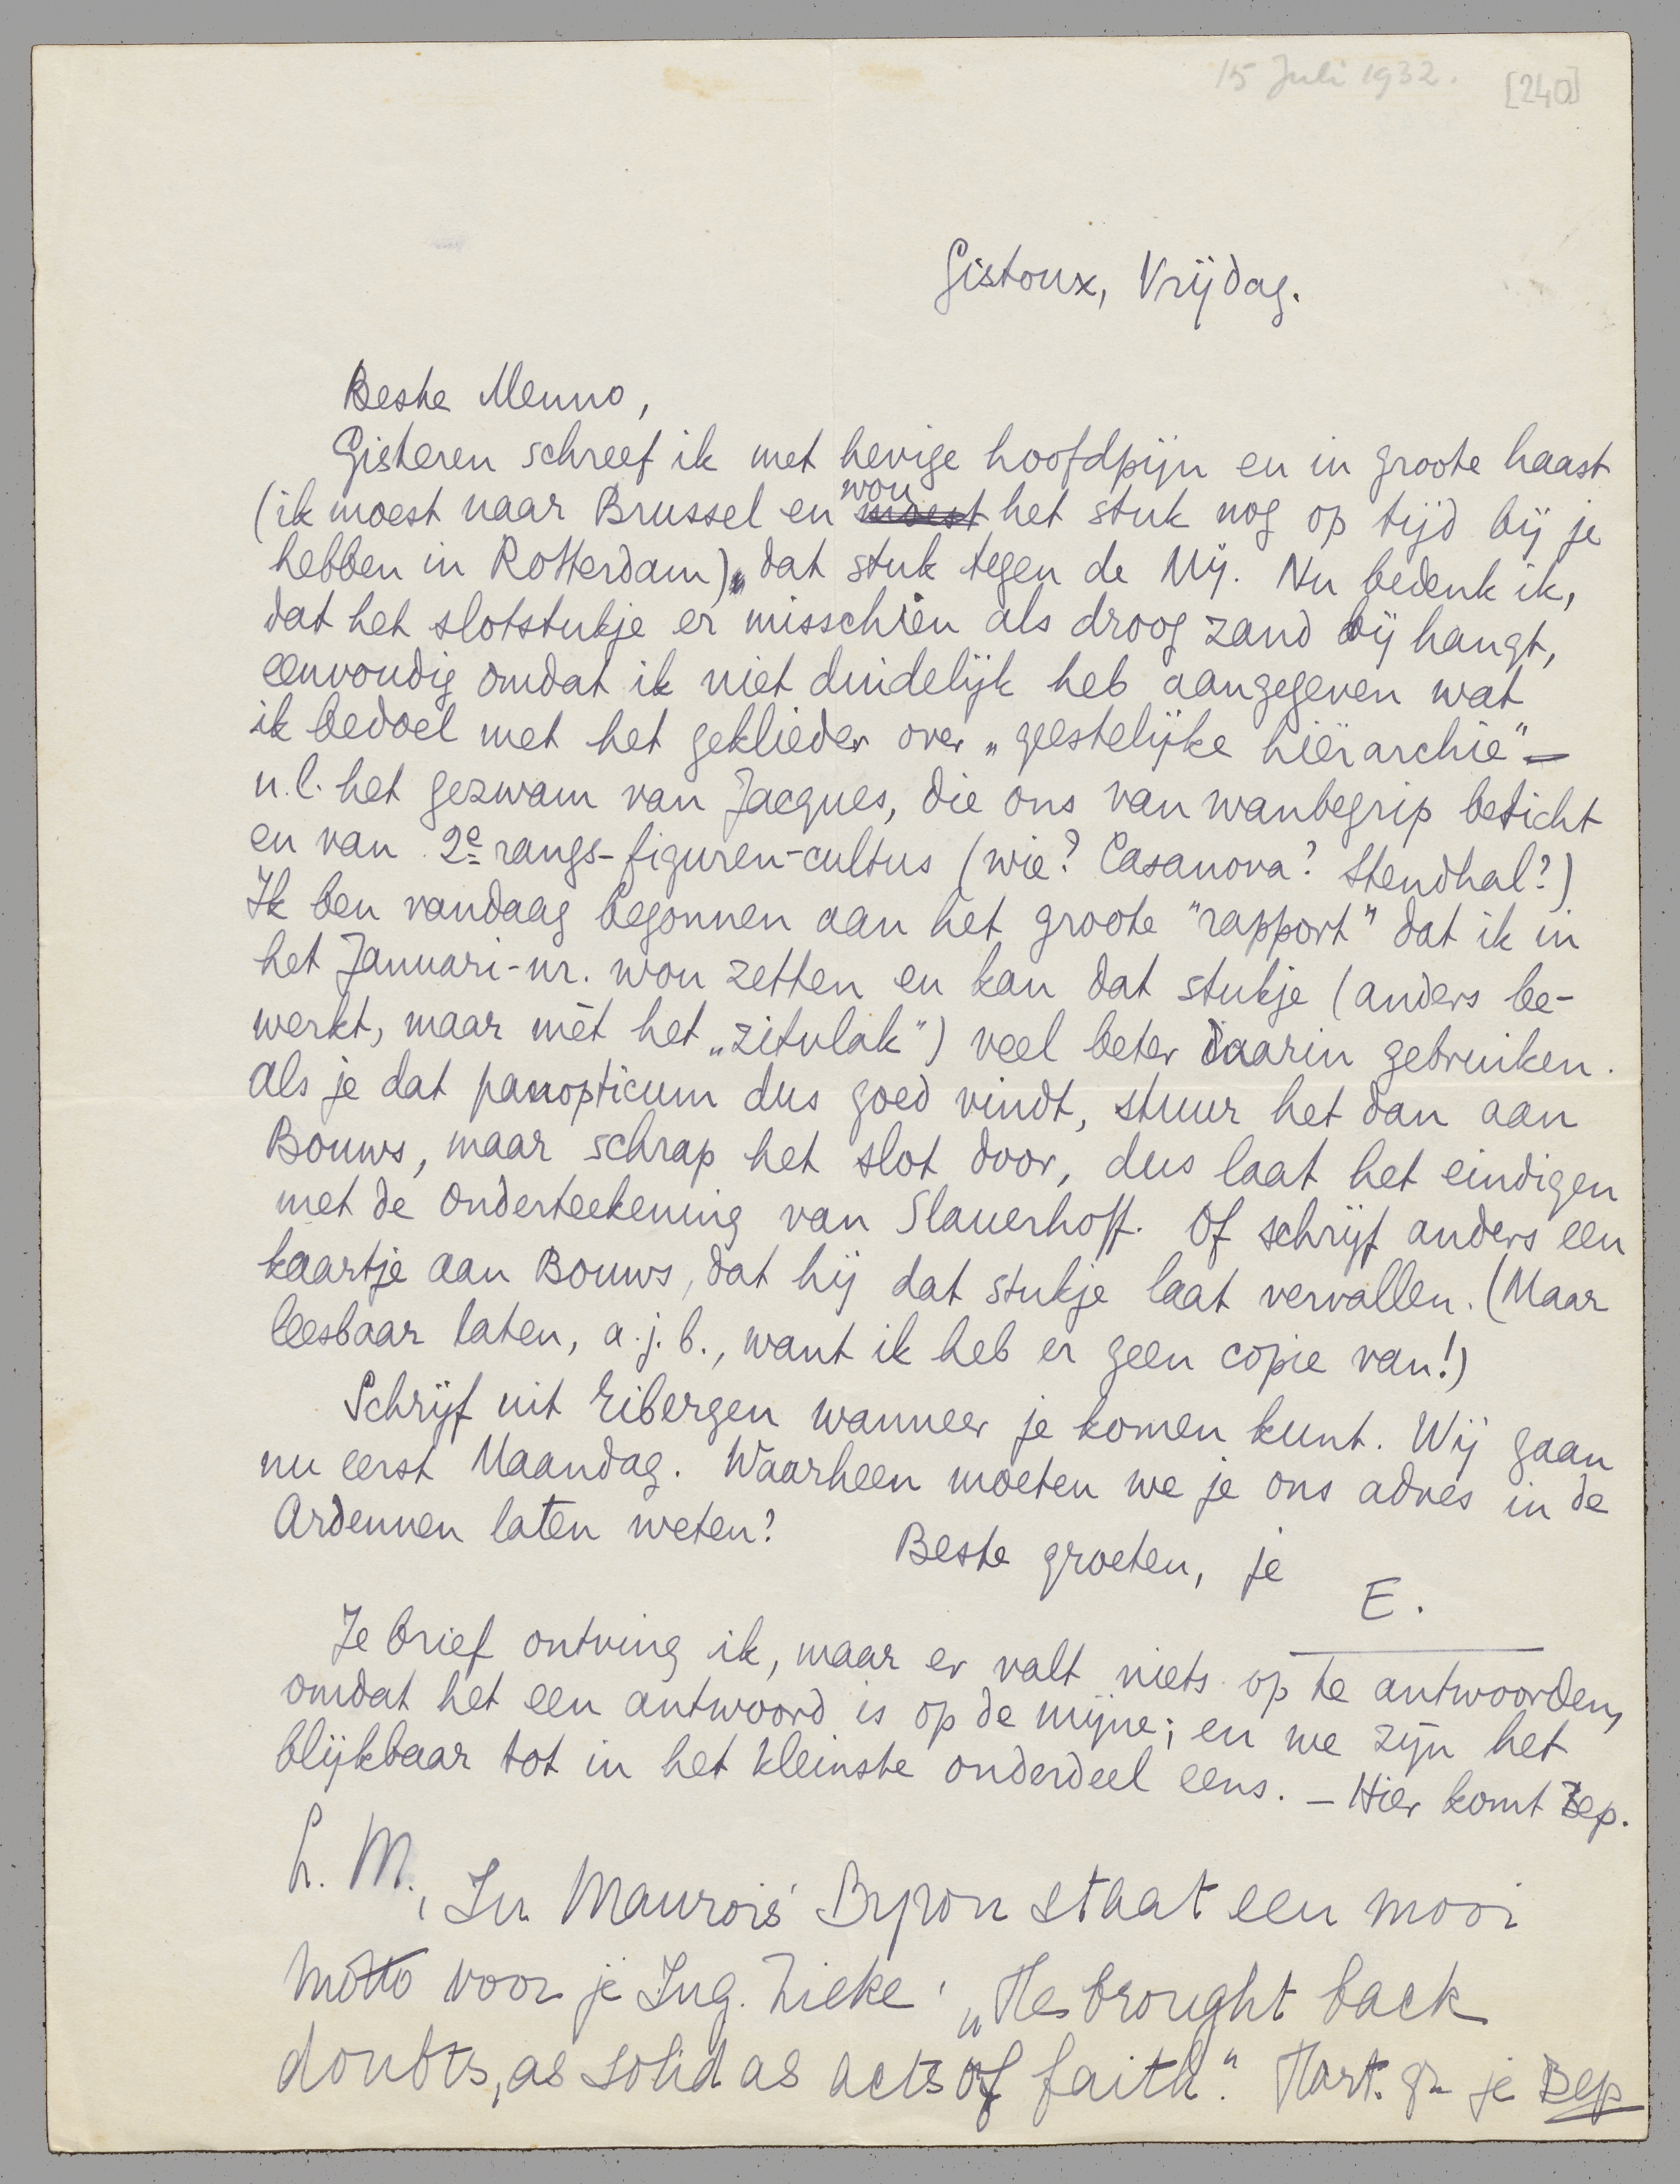 15 Juli 1932. [240]
Gistoux, Vrijdag.
Beste Menno,
Gisteren schreef ik met hevige hoofdpijn en in groote haast
(ik moest naar Brussel en wou moest het stuk nog op tijd bij je
hebben in Rotterdam), dat stuk tegen de Mij. Nu bedenk ik,
dat het slotstukje er misschien als droog zand bij hangt,
eenvoudig omdat ik niet duidelijk heb aangegeven wat
ik bedoel met het geklieder over „geestelijke hiërarchie" –
n.l. het gezwam van Jacques, die ons van wanbegrip beticht
en van 2e rangs-figuren-cultus (wie? Casanova? Stendhal?)
Ik ben vandaag begonnen aan het groote "rapport" dat ik in
het Januari-nr. wou zetten en kan dat stukje (anders be-
werkt, maar mèt het „zitvlak") veel beter daarin gebruiken.
Als je dat panopticum dus goed vindt, stuur het dan aan
Bouws, maar schrap het slot door, dus laat het eindigen
met de onderteekening van Slauerhoff. Of schrijf anders een
kaartje aan Bouws, dat hij dat stukje laat vervallen. (Maar
leesbaar laten, a.j.b., want ik heb er geen copie van!)
Schrijf uit Eibergen wanneer je komen kunt. Wij gaan
nu eerst Maandag. Waarheen moeten we je ons adres in de
Ardennen laten weten?
Beste groeten, je
E.
Je brief ontving ik, maar er valt niets op te antwoorden,
omdat het een antwoord is op de mijne; en we zijn het
blijkbaar tot in het kleinste onderdeel eens. – Hier komt Bep.
L. M., In Maurois' Byron staat een mooi
motto voor je Ing. Zieke: „He brought back
doubts, as solid as acts of faith." Hart. gr. je Bep